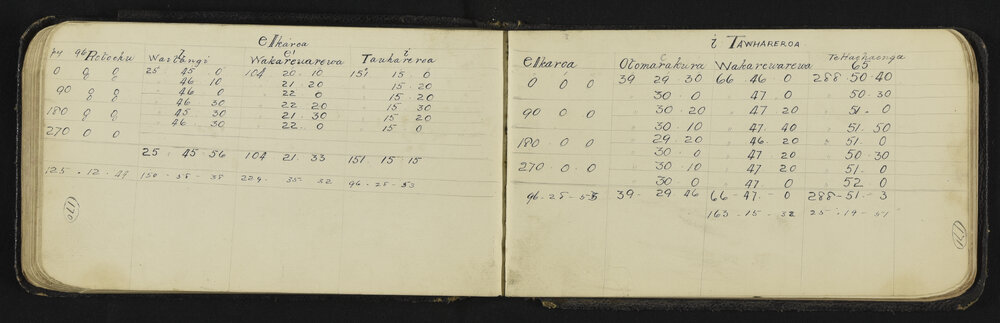 e Ikaroa
Rotochu Waitangi Wakarewarewa Tawhareroa
0 0 0 25 . 45 0 104 20 . 10 151 15 0
0 0 46 10 21 20 15 . 20
90 0 0 46 0 22 0 15 . 20
0 0 46 30 22 20 15 30
180 0 0 45 . 30 21 . 30 15 . 20
0 0 46 . 30 22 . 0 15 0
270 0 0
25 . 45 56 104 21 . 33 151 . 15 . 15
125 . 12 . 49 150 . 58 . 38 229 . 35 . 32 96 - 28 - 53
170
i TAWHAREROA
e Ikaroa Otomarakura Wakarewarewa
65
0 0 0 39 29 . 30 66 . 46 . 0 288 . 50 . 40
30 . 0 47 . 0 50 . 30
90 0 0 30 . 20 47 20 51 . 0
30 . 10 47 . 40 51 . 50
180 . 0 0 29 . 20 46 . 20 51 . 0
30 . 0 47 20 50 . 30
270 . 0 . 0 30 . 10 47 20 51 . 0
30 0 47 . 0 52 . 0
96 - 28 - 53 39 . 29 46 66 - 47 - 0 288 - 51 - 3
163 . 15 - 32 25 . 19 - 51
171